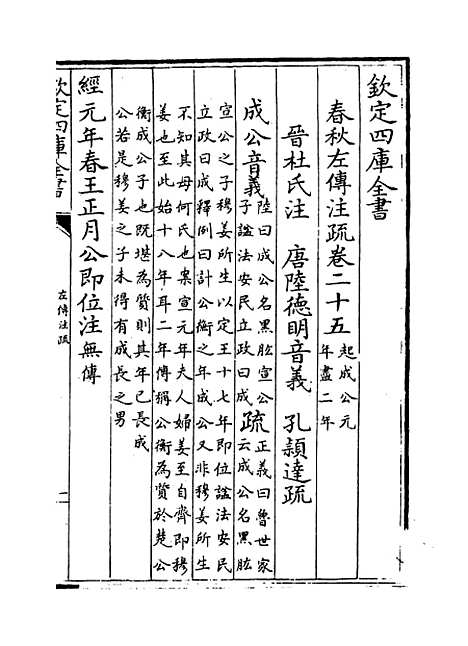 欽定四庫全書
春秋左傳注疏卷二十五起成公元
年盡二年
晉杜氏注 唐陸德明音義 孔穎達疏
成公音義陸曰成公名黑肱宣公
子謚法安民立政曰成疏正義曰魯世家
云成公名黑肱
宣公之子穆姜所生以定王十七年即位謚法安民
立政曰成釋例曰計公衡之年成公又非穆姜所生
不知其母何氏也案宣元年夫人婦姜至自齊即穆
姜也至此始十八年耳二年傳稱公衡為質於楚公
衡成公子也既堪為質則其年已長成
公若是穆姜之子未得有成長之男
經元年春王正月公即位注無傳
欽定四庫全書
左傳注疏
一